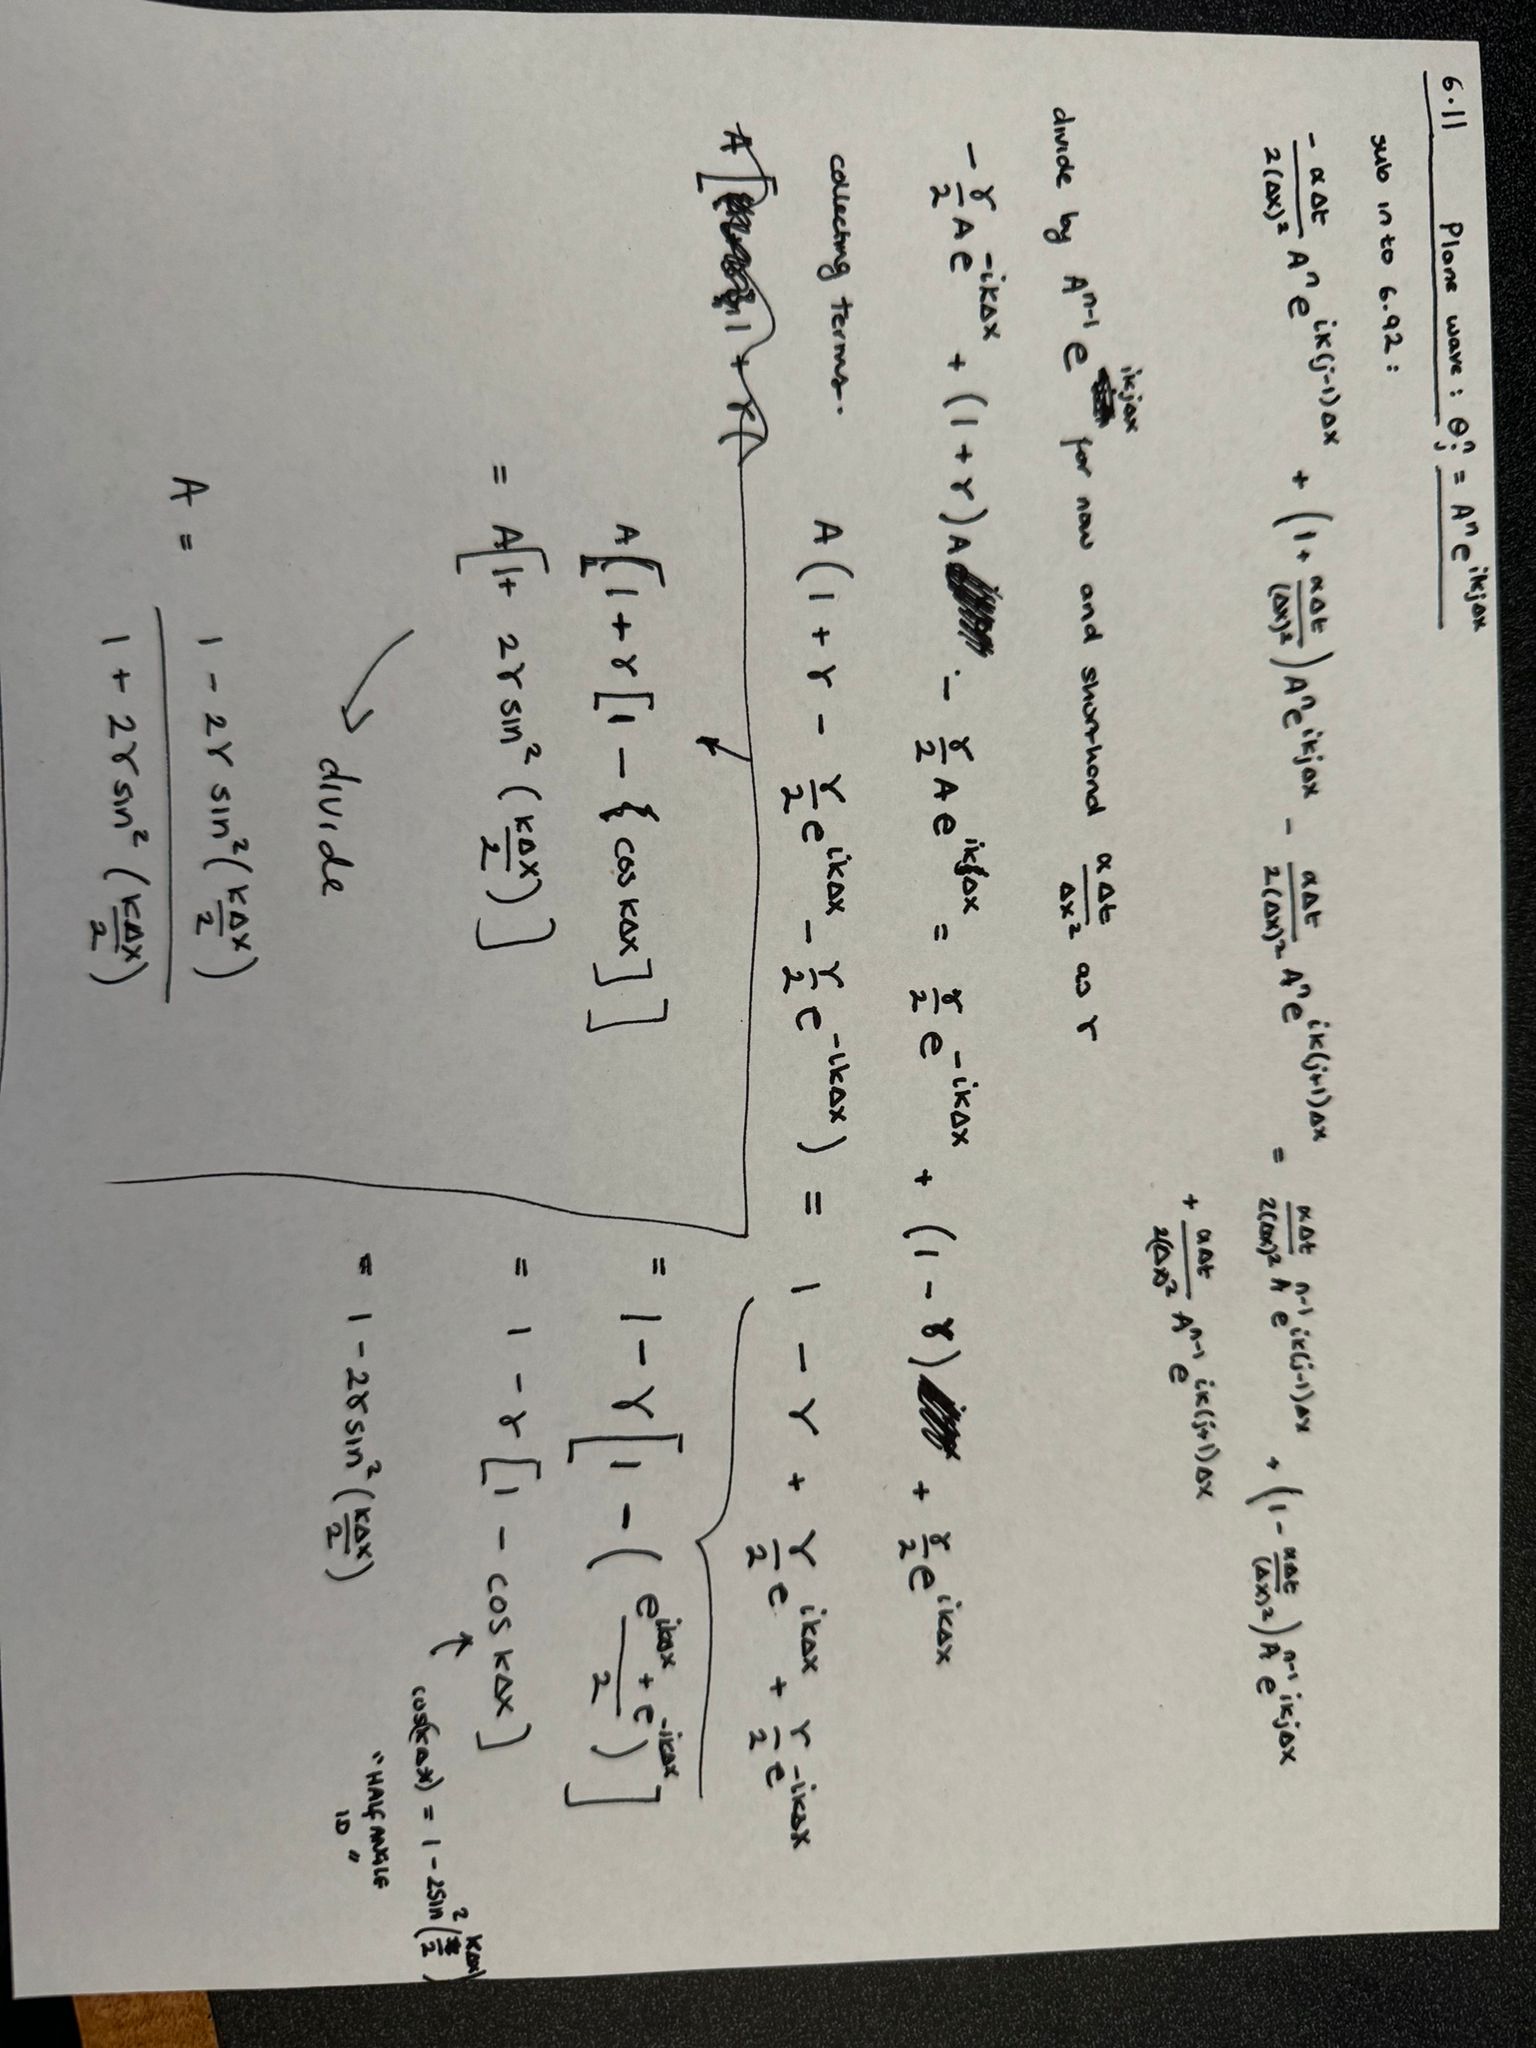 6.11 Plane wave : θⱼⁿ = Aⁿ e^{ikjΔx}
sub into 6.92 :
- αΔt/2(Δx)² Aⁿ e^{ik(j-1)Δx} + (1 + αΔt/(Δx)²) Aⁿ e^{ikjΔx} - αΔt/2(Δx)² Aⁿ e^{ik(j+1)Δx} = αΔt/2(Δx)² A^{n-1} e^{ik(j-1)Δx} + (1 - αΔt/(Δx)²) A^{n-1} e^{ikjΔx}
+ αΔt/2(Δx)² A^{n-1} e^{ik(j+1)Δx}
divide by A^{n-1} e^{ikjΔx} for now and shorthand αΔt/Δx² as r
- r/2 A e^{-ikΔx} + (1 + r) A - r/2 A e^{ikΔx} = r/2 e^{-ikΔx} + (1 - r) + r/2 e^{ikΔx}
collecting terms..
A (1 + r - r/2 e^{ikΔx} - r/2 e^{-ikΔx}) = 1 - r + r/2 e^{ikΔx} + r/2 e^{-ikΔx}
A [ 1 + r (
A [1 + r [1 - { cos kΔx] ]
= A [1 + 2r sin² (kΔx/2) ]
divide
A = 1 - 2r sin² (kΔx/2) / 1 + 2r sin² (kΔx/2)
= 1 - r [ 1 - ( e^{ikΔx} + e^{-ikΔx} / 2 ) ]
= 1 - r [ 1 - cos kΔx ]
cos(kΔx) = 1 - 2sin² (kΔx/2)
"HALF ANGLE
ID "
= 1 - 2r sin² (kΔx/2)